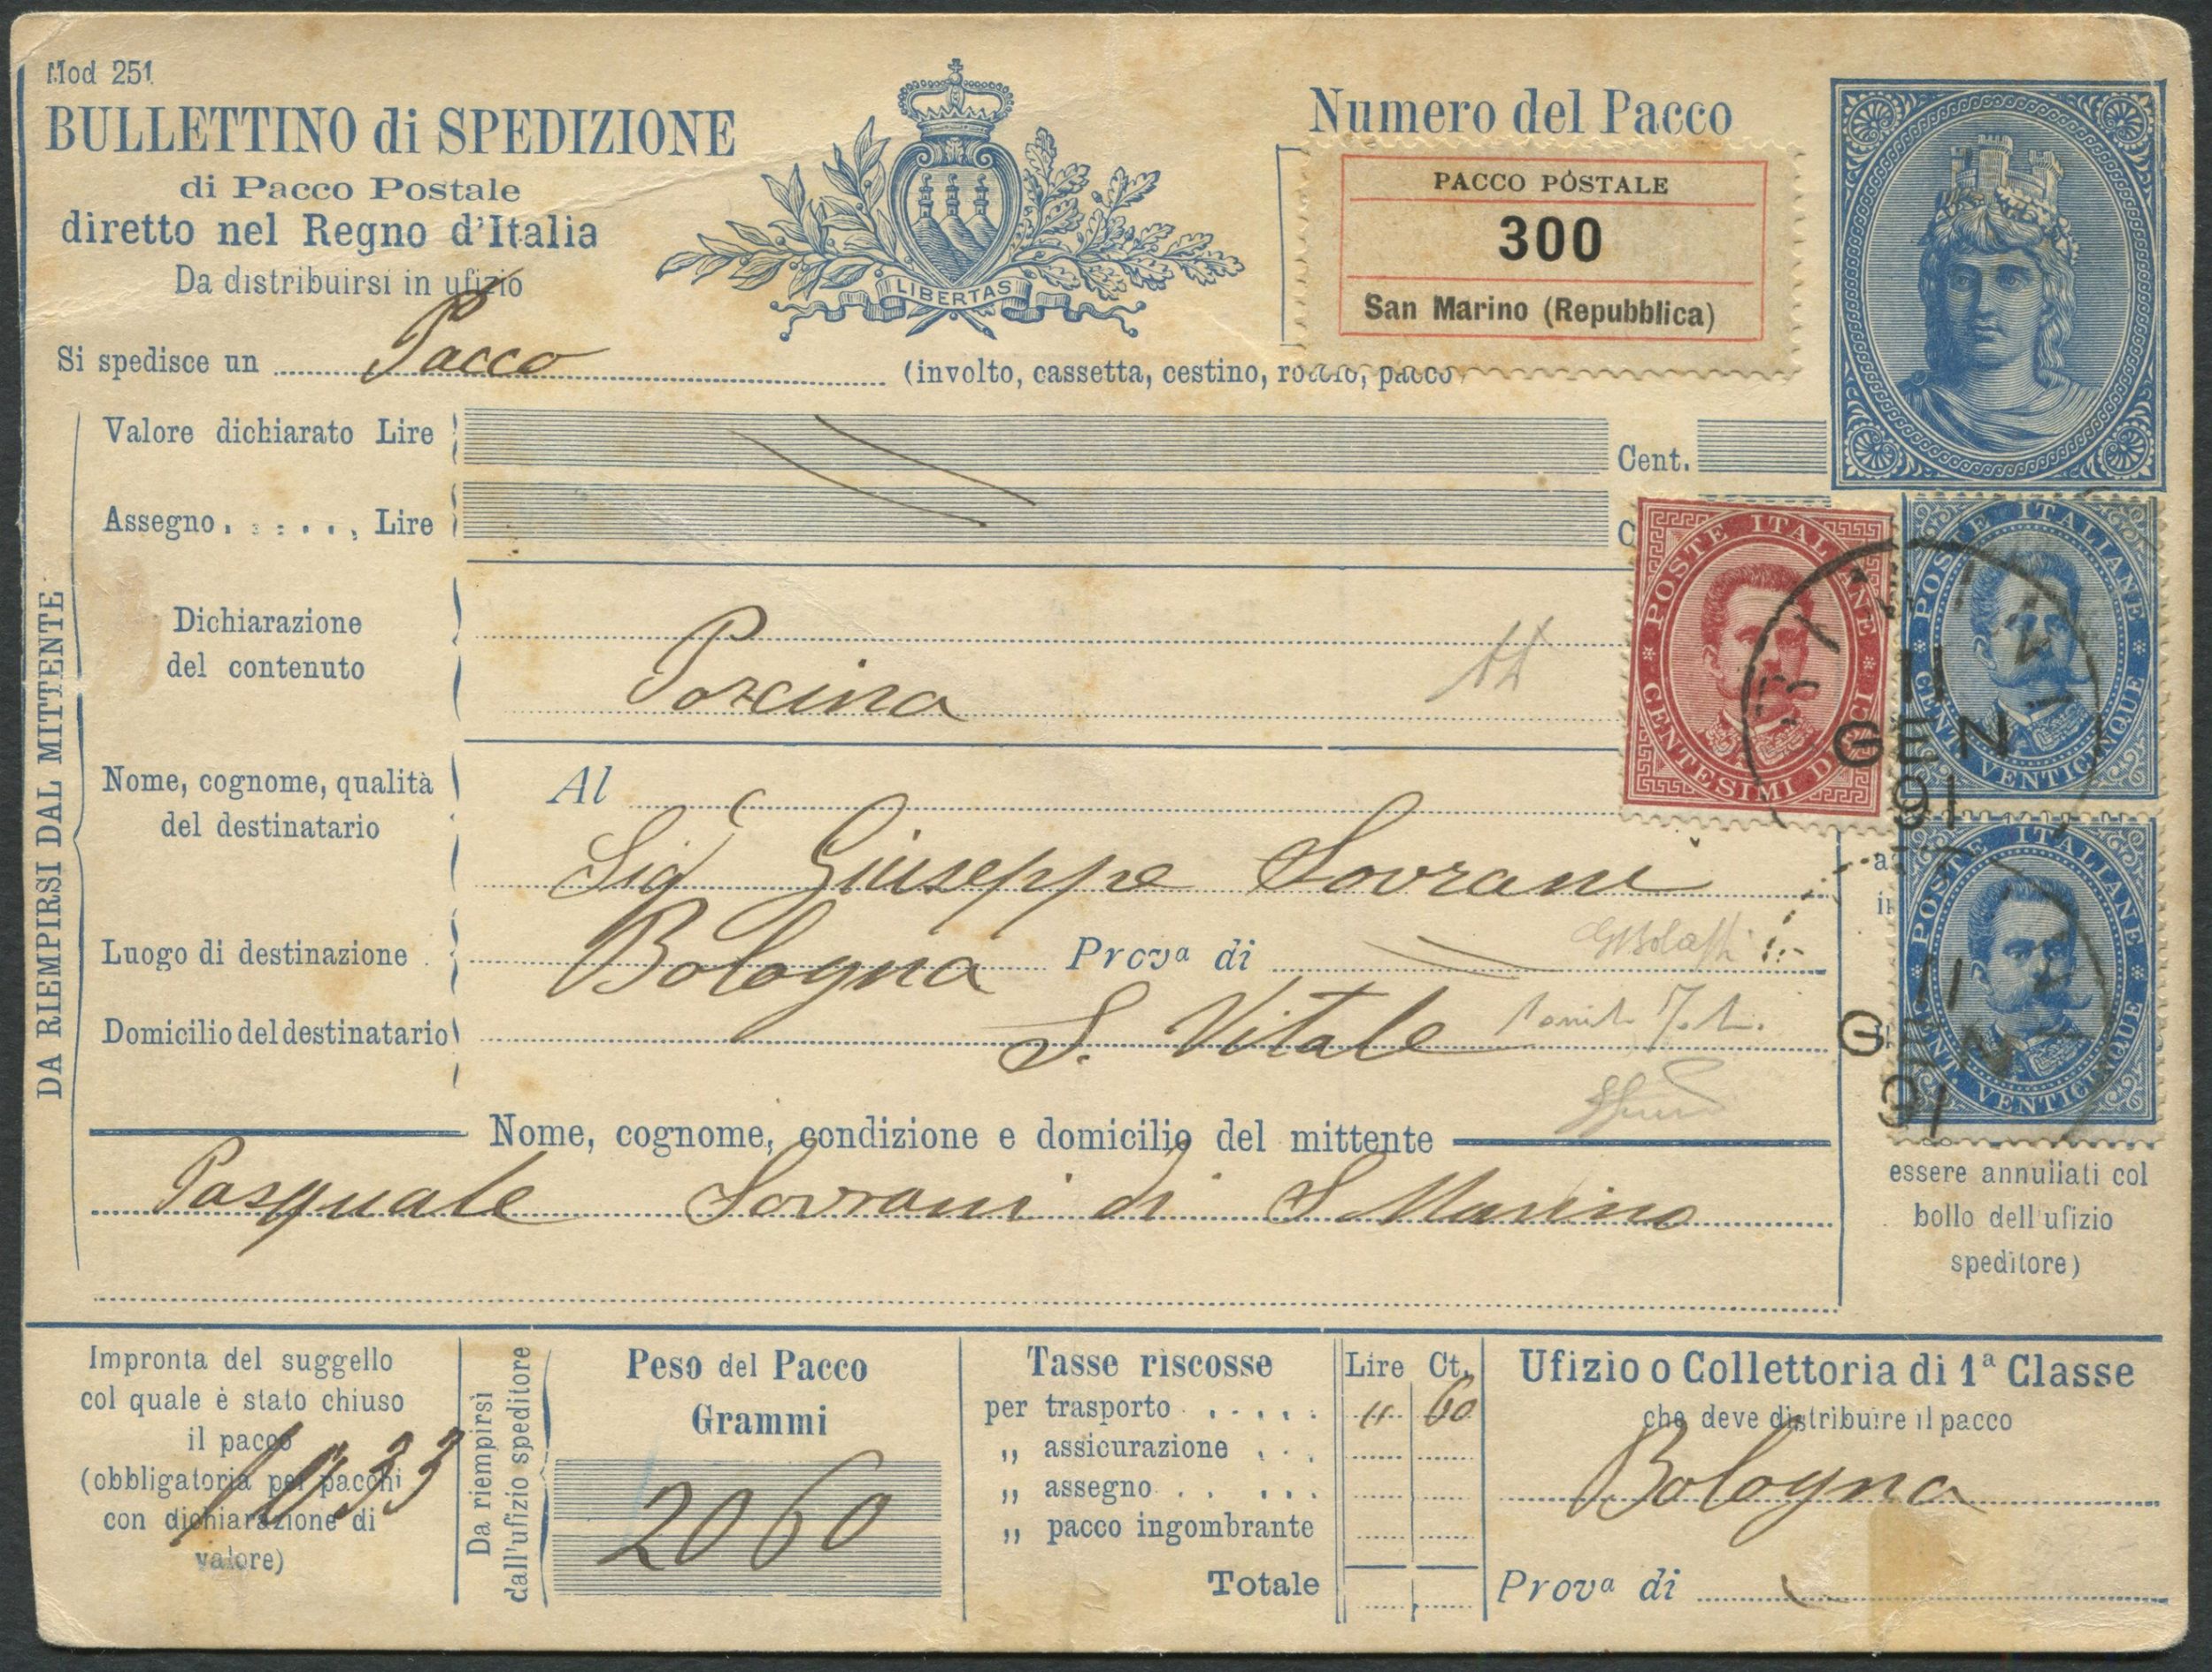 Mod 251.
BULLETTINO di SPEDIZIONE
di Pacco Postale
diretto nel Regno d'Italia
Da distribuirsi in ufizio
LIBERTAS
Numero del Pacco
PACCO POSTALE
300
San Marino (Repubblica)
Si spedisce un Pacco (involto, cassetta, cestino, rotolo, pacco
DA RIEMPIRSI DAL MITTENTE
Valore dichiarato Lire Cent.
Assegno Lire C
Dichiarazione
del contenuto
Porcina
POSTE ITALIANE
CENTESIMI DIECI
POSTE ITALIANE
CENT. VENTICINQUE
11
GEN
91
Nome, cognome, qualità
del destinatario
Al
Sigr Giuseppe Sovrani
Luogo di destinazione Bologna Prova di
Domicilio del destinatario S. Vitale
POSTE ITALIANE
CENT. VENTICINQUE
11
GEN
91
Nome, cognome, condizione e domicilio del mittente
Pasquale Sovrani di S. Marino
essere annullati col
bollo dell'ufizio
speditore)
Impronta del suggello
col quale è stato chiuso
il pacco
(obbligatoria per pacchi
con dichiarazione di
valore)
1033
Da riempirsi
dall'ufizio speditore
Peso del Pacco
Grammi
2060
Tasse riscosse Lire Ct.
per trasporto " 60
„ assicurazione
„ assegno
„ pacco ingombrante
Totale
Ufizio o Collettoria di 1ª Classe
che deve distribuire il pacco
Bologna
Prova di